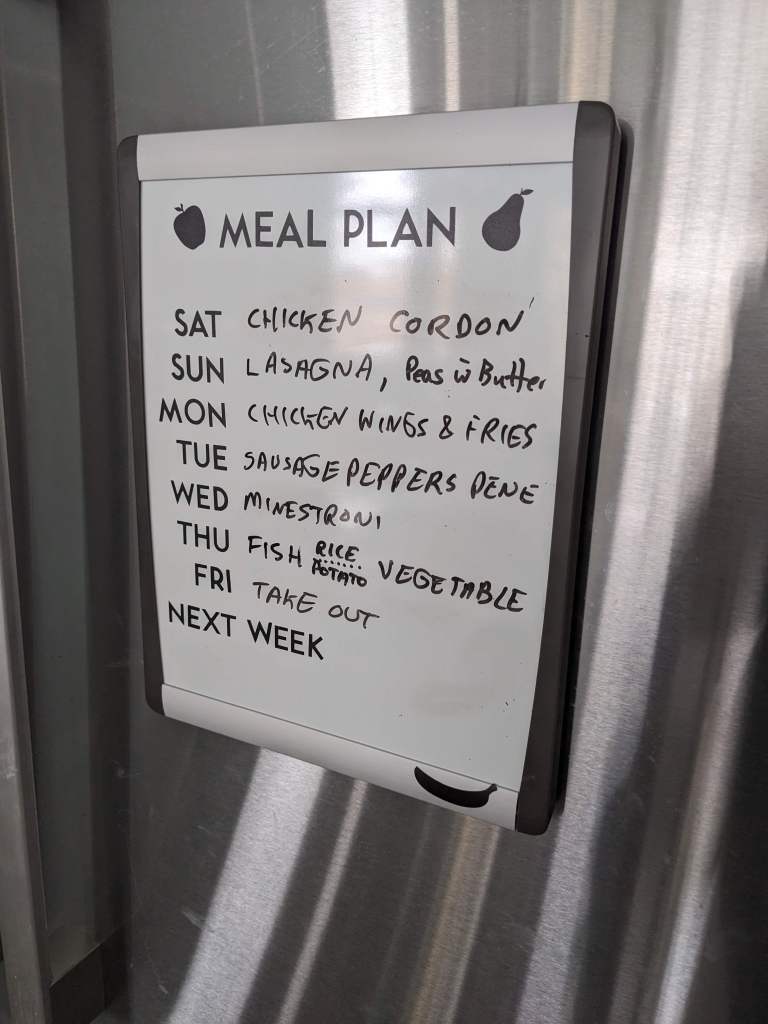 MEAL PLAN
SAT CHICKEN CORDON
SUN LASAGNA, Peas w Butter
MON CHICKEN WINGS & FRIES
TUE SAUSAGE PEPPERS PENE
WED MINESTRONI
THU FISH RICE POTATO VEGETABLE
FRI TAKE OUT
NEXT WEEK